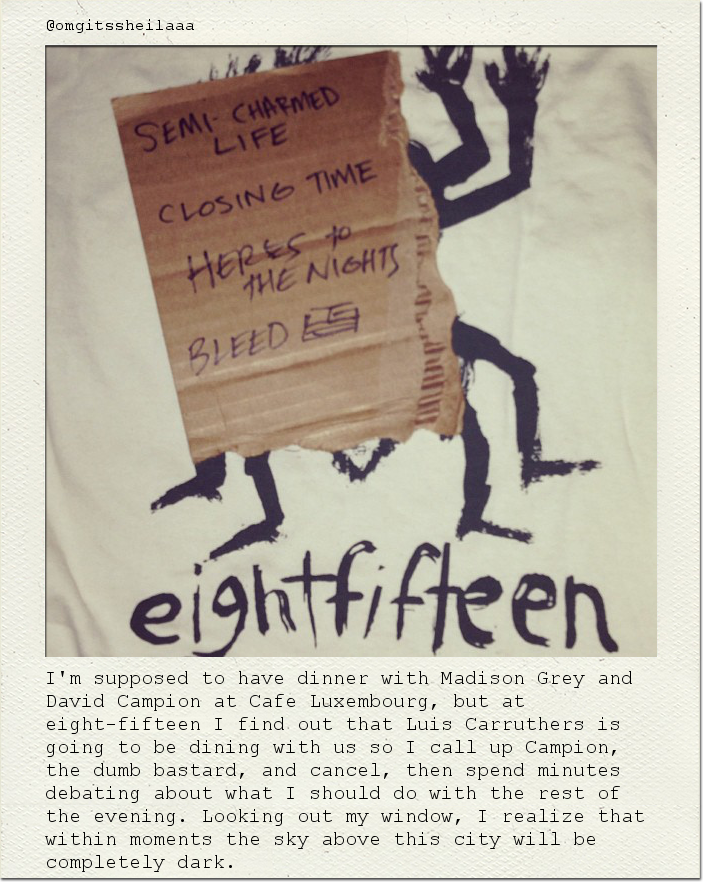 @omgitssheilaaa
SEMI-CHARMED
LIFE
CLOSING TIME
HERES to
tHE NIGHTS
BLEED
eightfifteen
I'm supposed to have dinner with Madison Grey and
David Campion at Cafe Luxembourg, but at
eight-fifteen I find out that Luis Carruthers is
going to be dining with us so I call up Campion,
the dumb bastard, and cancel, then spend minutes
debating about what I should do with the rest of
the evening. Looking out my window, I realize that
within moments the sky above this city will be
completely dark.